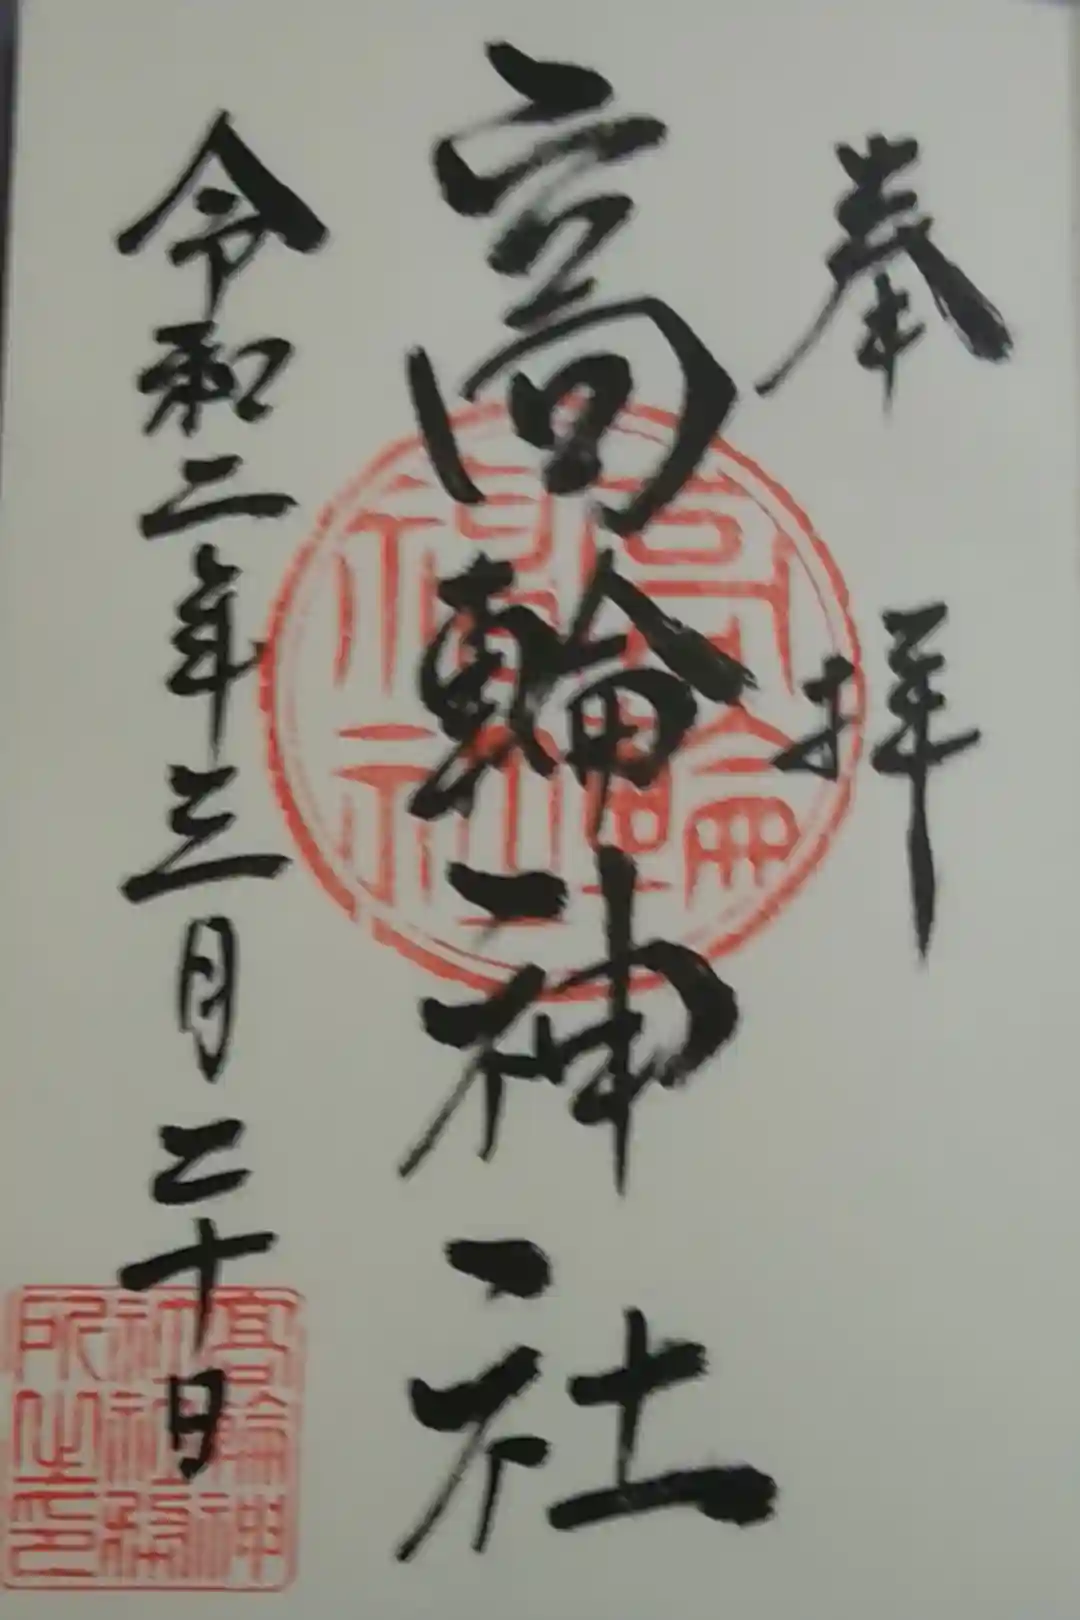 奉拝
高輪神社
令和二年三月二十日
高輪
神社
高輪神
社社務
所之印